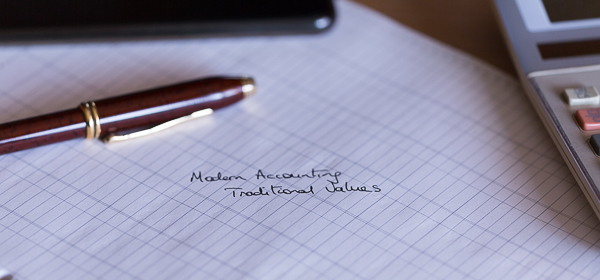 Modern Accounting
Traditional Values